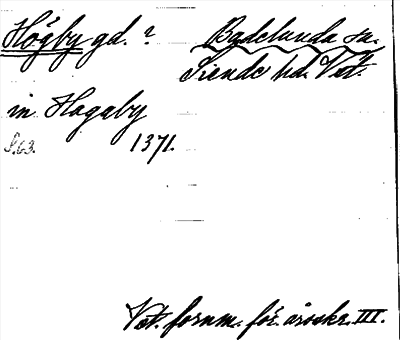 Högby gd. ? Badelunda sn.
Siende hd. Vstl.
in Hagaby
S.63. 1371.
Vst. fornm. för. årsskr. III.